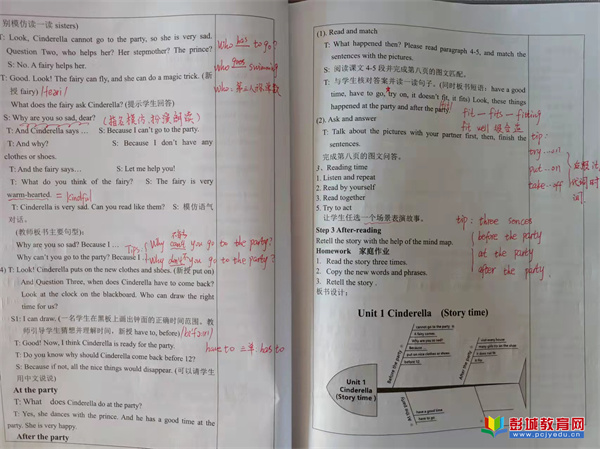 别模仿读一读 sisters)
T: Look, Cinderella cannot go to the party, so she is very sad.
Question Two, who helps her? Her stepmother? The prince?
S: No. A fairy helps her.
T: Good. Look! The fairy can fly, and she can do a magic trick. (新
授 fairy)
What does the fairy ask Cinderella? (提示学生回答)
S: Why are you so sad, dear? (指名模仿, 扮演朗读)
T: And Cinderella says … S: Because I can't go to the party.
T: And why? S: Because I don't have any
clothes or shoes.
T: And the fairy says… S: Let me help you!
T: What do you think of the fairy? S: The fairy is very
warm-hearted. = kindful
T: Cinderella is very sad. Can you read like them? S: 模仿语气
对话。
(教师板书主要句型):
Why are you so sad? Because I …
Why can't you go to the party? Because I
Tip: Why can't you go to the party?
Why don't you go to the party?
4) T: Look! Cinderella puts on the new clothes and shoes. (新授 put on)
And Question Three, when does Cinderella have to come back?
Look at the clock on the blackboard. Who can draw the right
time for us?
S1: I can draw. (一名学生在黑板上画出钟面的正确时间范围。教
师引导学生猜想并理解时间，新授 have to, before)
T: Good! Now, I think Cinderella is ready for the party.
have to 三单: has to
T: Do you know why should Cinderella come back before 12?
S: Because if not, all the nice things would disappear. (可以请学生
用中文说说)
At the party
T: What does Cinderella do at the party?
T: Yes, she dances with the prince. And he has a good time at the
party. She is very happy.
After the party
Who has to go?
Who goes swimming?
Who: 第三人称单数
(1). Read and match
T: What happened then? Please read paragraph 4-5, and match the
sentences with the pictures.
S: 阅读课文 4-5 段并完成第八页的图文匹配。
T: 与学生核对答案并读一读句子。(同时板书短语: have a good
time, have to go, try on, it doesn't fit, it fits) Look, these things
happened at the party and after the party.
fit — fits — fitting
fit well 很合适
(2). Ask and answer
T: Talk about the pictures with your partner first, then, finish the
sentences.
完成第八页的图文问答。
tip:
try…on
put…on
take…off
3、Reading time
1. Listen and repeat
2. Read by yourself
3. Read together
5. Try to act
让学生任选一个场景表演故事。
Step 3 After-reading
Retell the story with the help of the mind map.
Homework 家庭作业
1. Read the story three times.
2. Copy the new words and phrases.
3. Retell the story .
板书设计:
tip: three sences
before the party
at the party
after the party
Unit 1 Cinderella (Story time)
Unit 1
Cinderella
(Story time)
Before the party
cannot go to the party
Why are you so sad?
Because…
before 12
After the party
At the party
have a good time
have to go
彭城教育网
www.pcjyedu.cn